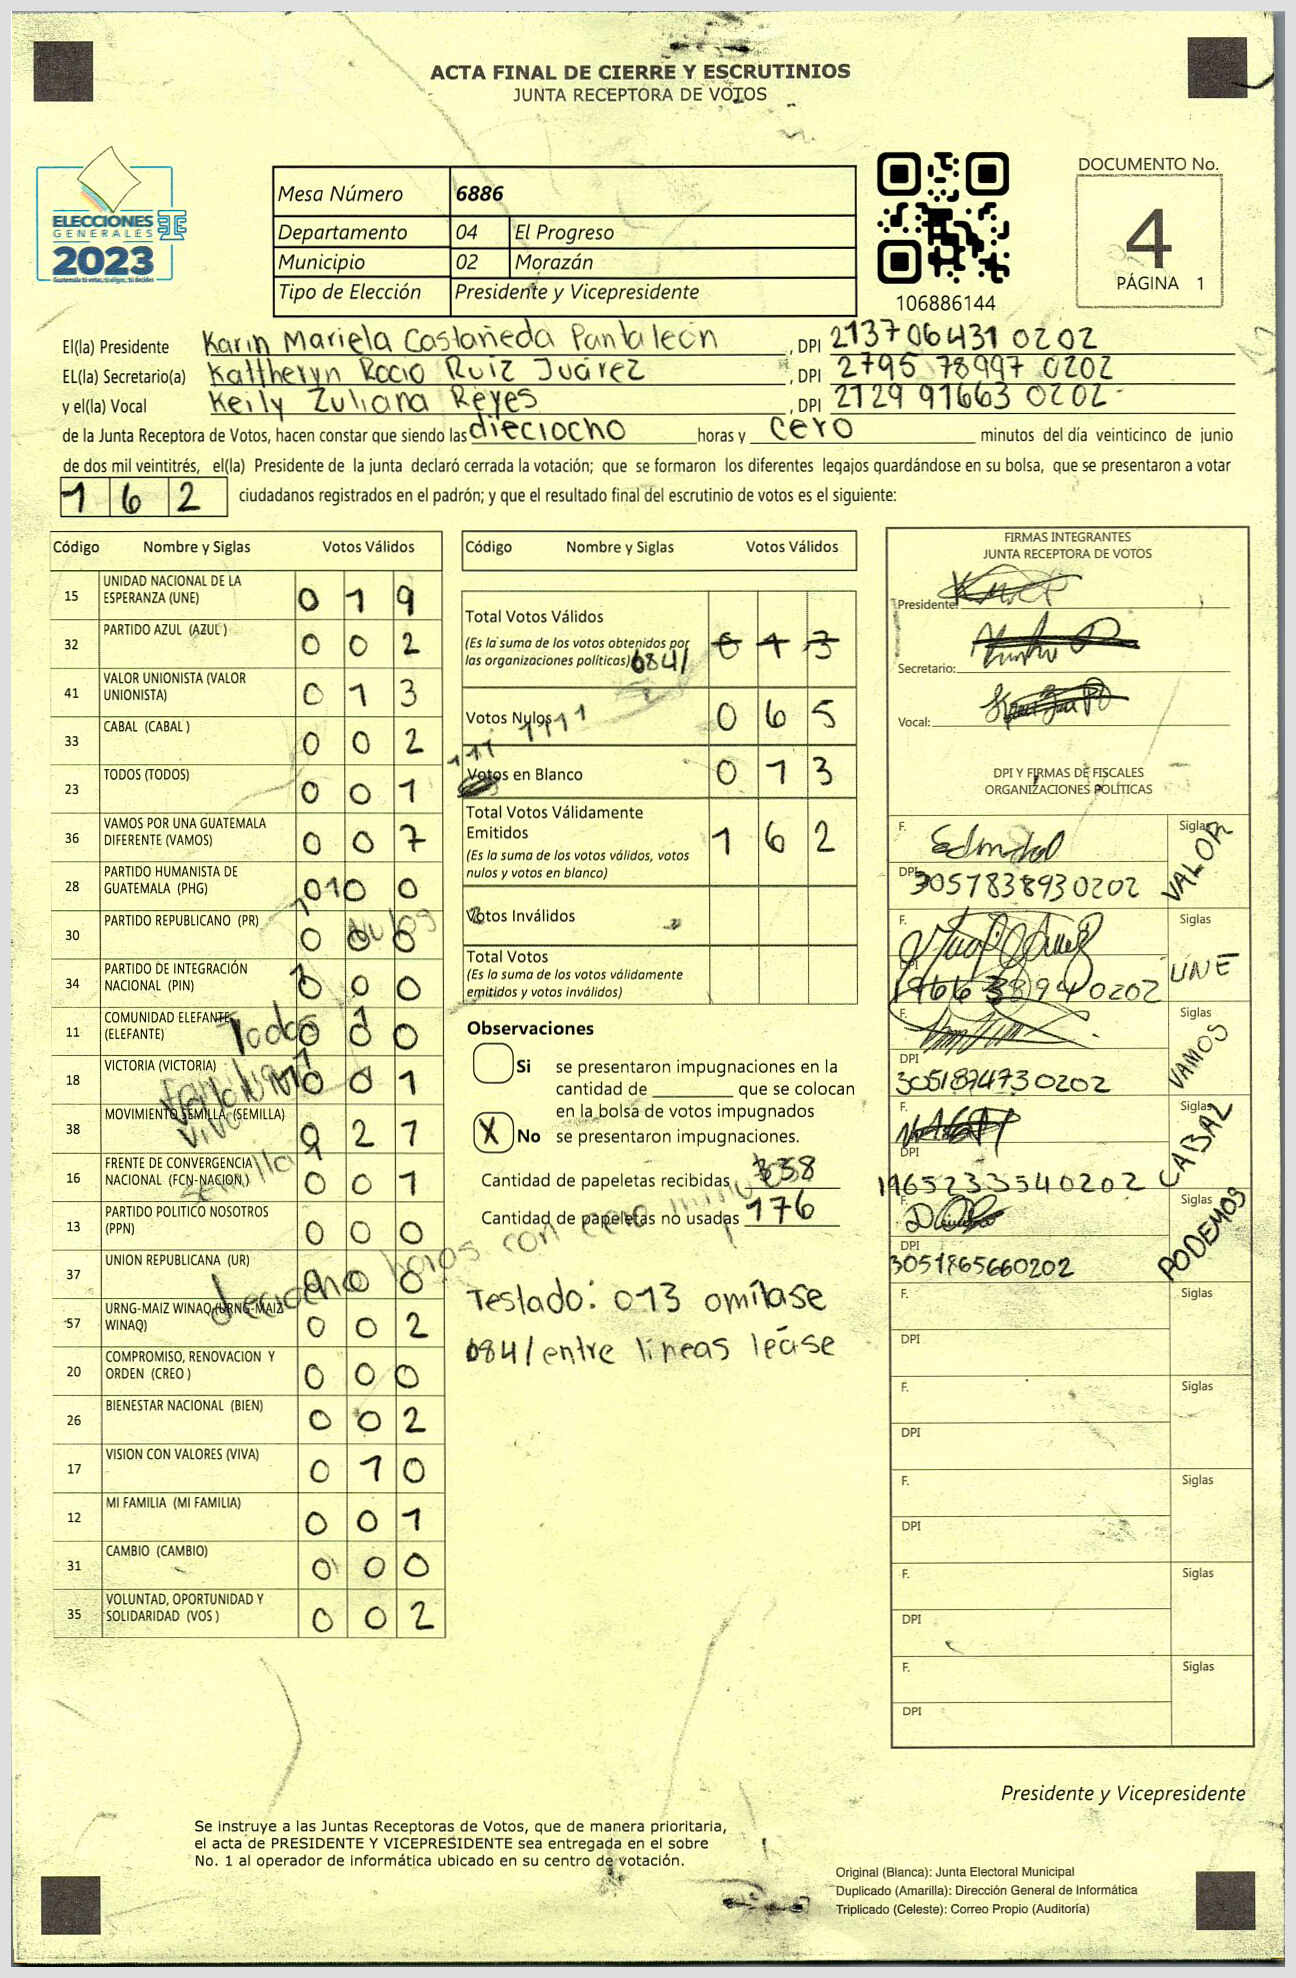 ACTA FINAL DE CIERRE Y ESCRUTINIOS
JUNTA RECEPTORA DE VOTOS
ELECCIONES
GENERALES
2023
Guatemala tú votas, tú eliges, tú decides
Mesa Número 6886
Departamento 04 El Progreso
Municipio 02 Morazán
Tipo de Elección Presidente y Vicepresidente
106886144
DOCUMENTO No.
4
PÁGINA 1
El(la) Presidente Karin Mariela Castañeda Pantaleón , DPI 213706431 0202
EL(la) Secretario(a) Kattheryn Rocio Ruíz Juárez , DPI 2795 78997 0202
y el(la) Vocal Keily Zuliana Reyes , DPI 2129 91663 0202
de la Junta Receptora de Votos, hacen constar que siendo las dieciocho horas y cero minutos del día veinticinco de junio
de dos mil veintitrés, el(la) Presidente de la junta declaró cerrada la votación; que se formaron los diferentes legajos guardándose en su bolsa, que se presentaron a votar
162 ciudadanos registrados en el padrón; y que el resultado final del escrutinio de votos es el siguiente:
Código Nombre y Siglas Votos Válidos
15 UNIDAD NACIONAL DE LA ESPERANZA (UNE) 0 1 9
32 PARTIDO AZUL (AZUL ) 0 0 2
41 VALOR UNIONISTA (VALOR UNIONISTA) 0 1 3
33 CABAL (CABAL ) 0 0 2
23 TODOS (TODOS) 0 0 1
36 VAMOS POR UNA GUATEMALA DIFERENTE (VAMOS) 0 0 7
28 PARTIDO HUMANISTA DE GUATEMALA (PHG) 0 0 0
30 PARTIDO REPUBLICANO (PR) 0 0 0
Nulos
34 PARTIDO DE INTEGRACIÓN NACIONAL (PIN) 0 0 0
11 COMUNIDAD ELEFANTE (ELEFANTE) 0 0 0
Todos 1
18 VICTORIA (VICTORIA) 0 0 1
38 MOVIMIENTO SEMILLA (SEMILLA) 0 2 1
16 FRENTE DE CONVERGENCIA NACIONAL (FCN-NACION ) 0 0 1
semilla
13 PARTIDO POLITICO NOSOTROS (PPN) 0 0 0
37 UNION REPUBLICANA (UR) 0 0 0
dieciocho horas con cero minutos
57 URNG-MAIZ WINAQ (URNG-MAIZ WINAQ) 0 0 2
20 COMPROMISO, RENOVACION Y ORDEN (CREO ) 0 0 0
26 BIENESTAR NACIONAL (BIEN) 0 0 2
17 VISION CON VALORES (VIVA) 0 1 0
12 MI FAMILIA (MI FAMILIA) 0 0 1
31 CAMBIO (CAMBIO) 0 0 0
35 VOLUNTAD, OPORTUNIDAD Y SOLIDARIDAD (VOS ) 0 0 2
Código Nombre y Siglas Votos Válidos
Total Votos Válidos
(Es la suma de los votos obtenidos por
las organizaciones políticas) 084/ 0 1 3
Votos Nulos 0 6 5
Votos en Blanco 0 1 3
Total Votos Válidamente
Emitidos 1 6 2
(Es la suma de los votos válidos, votos
nulos y votos en blanco)
Votos Inválidos
Total Votos
(Es la suma de los votos válidamente
emitidos y votos inválidos)
Observaciones
Si se presentaron impugnaciones en la
cantidad de que se colocan
en la bolsa de votos impugnados
X No se presentaron impugnaciones.
Cantidad de papeletas recibidas 338
Cantidad de papeletas no usadas 176
Teslado: 013 omítase
084/ entre líneas leáse
FIRMAS INTEGRANTES
JUNTA RECEPTORA DE VOTOS
Presidente:
Secretario:
Vocal:
DPI Y FIRMAS DE FISCALES
ORGANIZACIONES POLÍTICAS
F. Siglas VALOR
DPI 3057838930202
F. Siglas UNE
DPI 1966389940202
F. Siglas VAMOS
DPI 3051874730202
F. Siglas CABAL
DPI 1965233540202
F. Siglas PODEMOS
DPI 3051865660202
F. Siglas
DPI
F. Siglas
DPI
F. Siglas
DPI
F. Siglas
DPI
F. Siglas
DPI
Presidente y Vicepresidente
Se instruye a las Juntas Receptoras de Votos, que de manera prioritaria,
el acta de PRESIDENTE Y VICEPRESIDENTE sea entregada en el sobre
No. 1 al operador de informática ubicado en su centro de votación.
Original (Blanca): Junta Electoral Municipal
Duplicado (Amarilla): Dirección General de Informática
Triplicado (Celeste): Correo Propio (Auditoría)